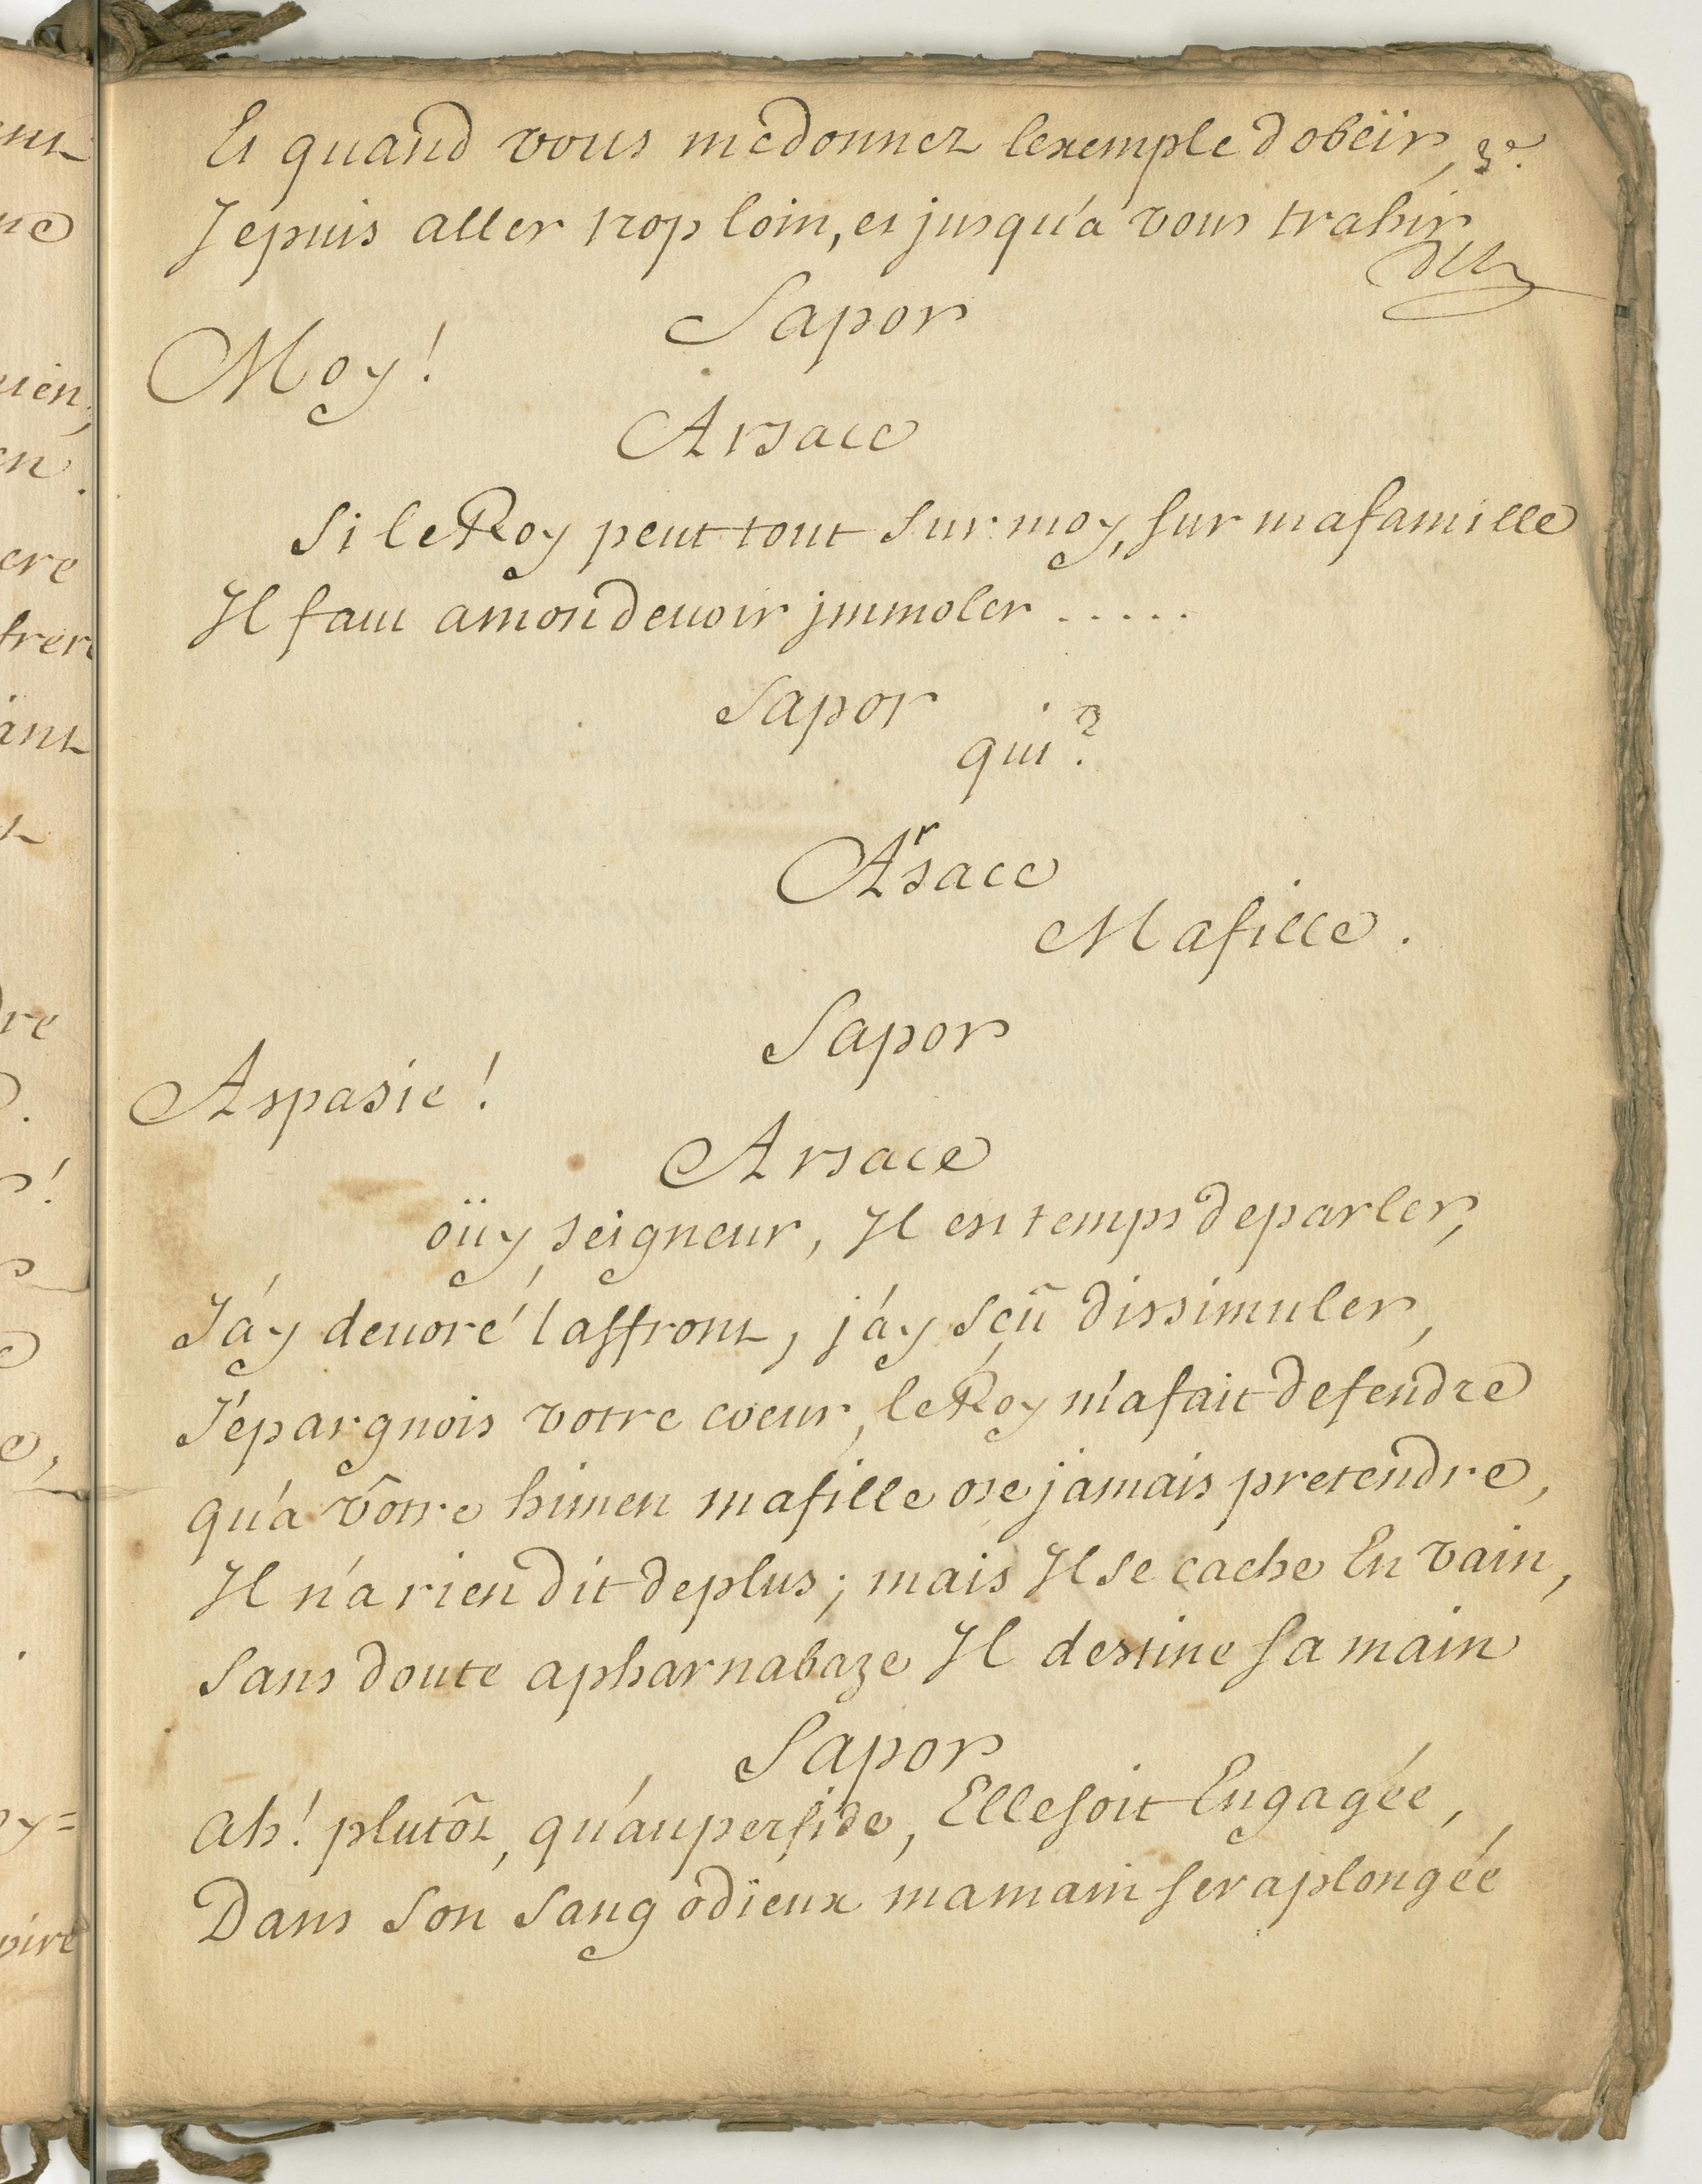 Et quand vous me donnez lexemple dobëir, 3e.
Je puis aller trop loin, et jusqu'a vous trahir
Sapor
Moy!
Arsace
Si le Roy peut tout sur moy, sur ma famille
Il faut a mon devoir jmmoler .....
Sapor
qui?
Arsace
Ma fille.
Sapor
Aspasie!
Arsace
oüy, seigneur, Il est temps de parler,
J'ay devoré laffront, j'ay sçû dissimuler,
J'epargnois votre coeur, le Roy m'a fait defendre
qu'a vôtre himen ma fille ose jamais pretendre,
Il n'a rien dit de plus; mais Il se cache En vain,
Sans doute a pharnabaze Il destine sa main
Sapor
Ah! plutôt, qu'au perfide, Elle soit Engagée,
Dans son sang odieux ma main sera plongée